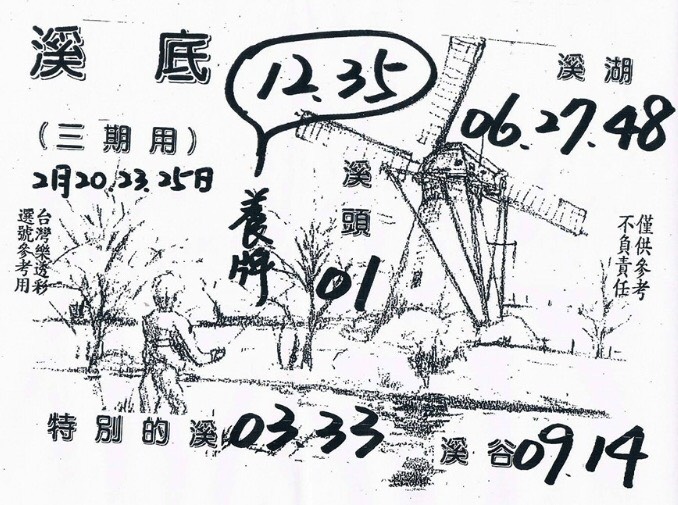 溪底
(三期用)
2月20.23.25日
台灣樂透彩
選號參考用
12.35
養牌
溪頭
01
溪湖
06.27.48
僅供參考
不負責任
特別的溪
03.33
溪谷
09.14